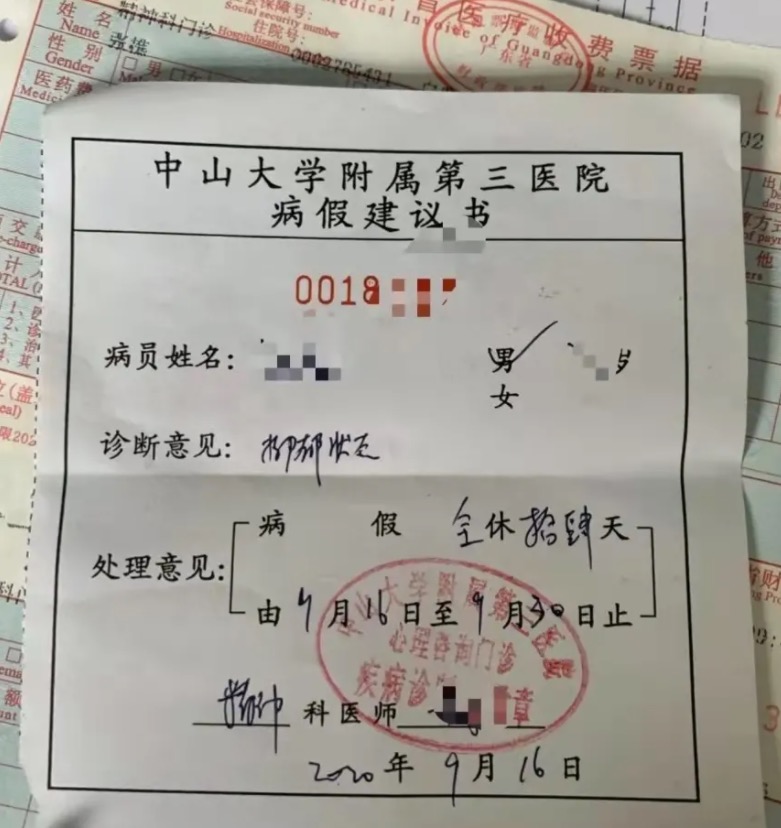 姓名
Name
张维
精神科门诊
会保障号:
Social security number
住院号:
Hospitalization
0002785431
性别
Gender
男
女
医药费
Medic
Medical Invoice of Guangdong Province
医疗收费票据
广东省
中山大学附属第三医院
病假建议书
0018
病员姓名:
男
岁
女
诊断意见: 抑郁状态
处理意见:
病 假 全休拾肆天
由9月16日至9月30日止
精神科医师
2020年9月16日
中山大学附属第三医院
心理咨询门诊
疾病诊
章